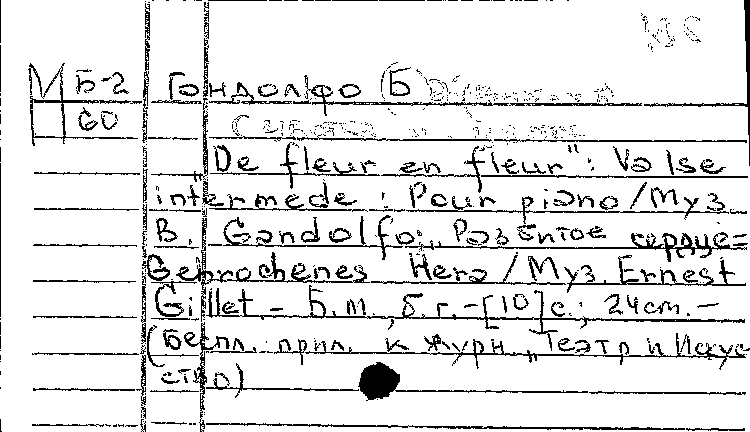 М Б-2 Гондолфо (Б
60
"De fleur en fleur": Valse
intermede : Pour piano / Муз.
B. Gandolfo; „Разбитое сердце=
Gebrochenes Herz / Муз. Ernest
Gillet. – Б.м., б.г. – [10] с.; 24 cm. –
(Беспл. прил. к журн. „Театр и Искус
ство)